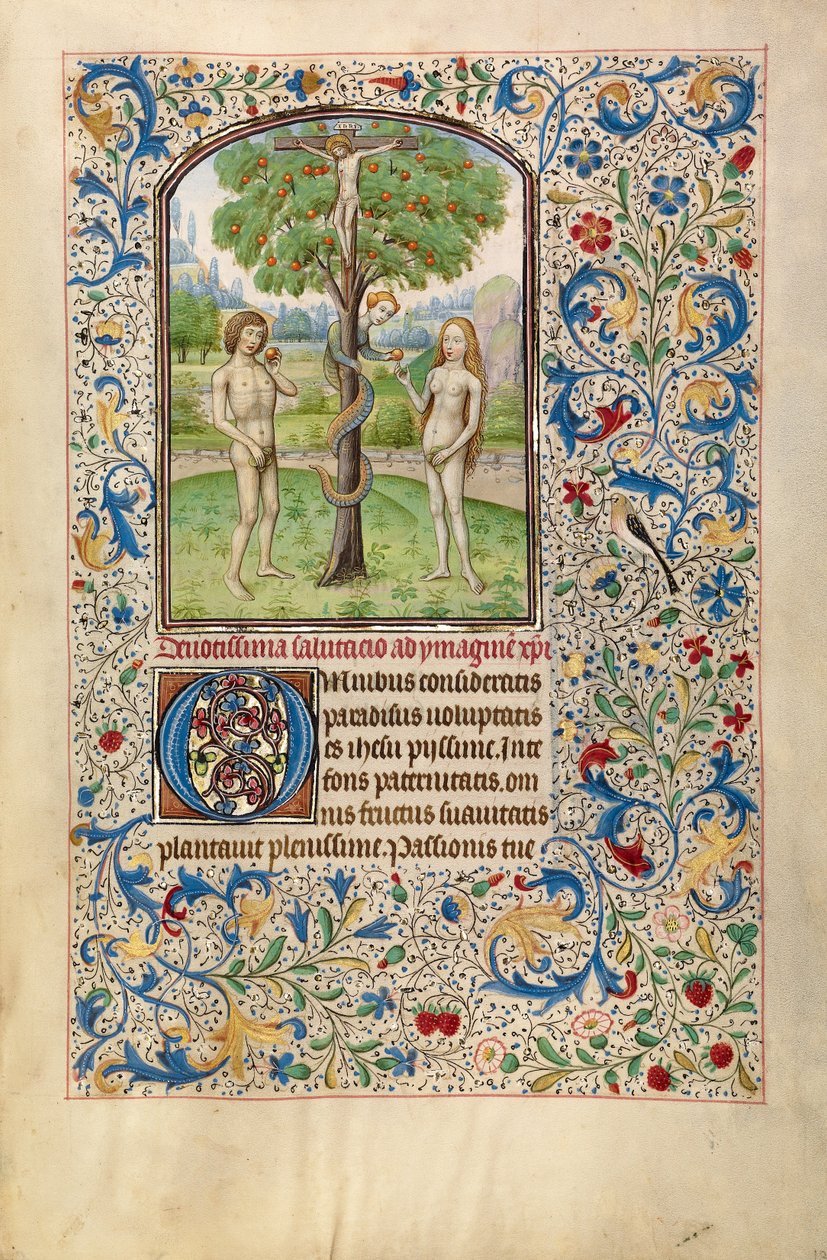 Deuotissima salutacio ad ymaginē xpi
OMnibus consideratis
paradisus uoluptatis
es ihesu pijssime. Inte
fons paternitatis. om
nis fructus suauitatis
plantauit plenissime. Passionis tue